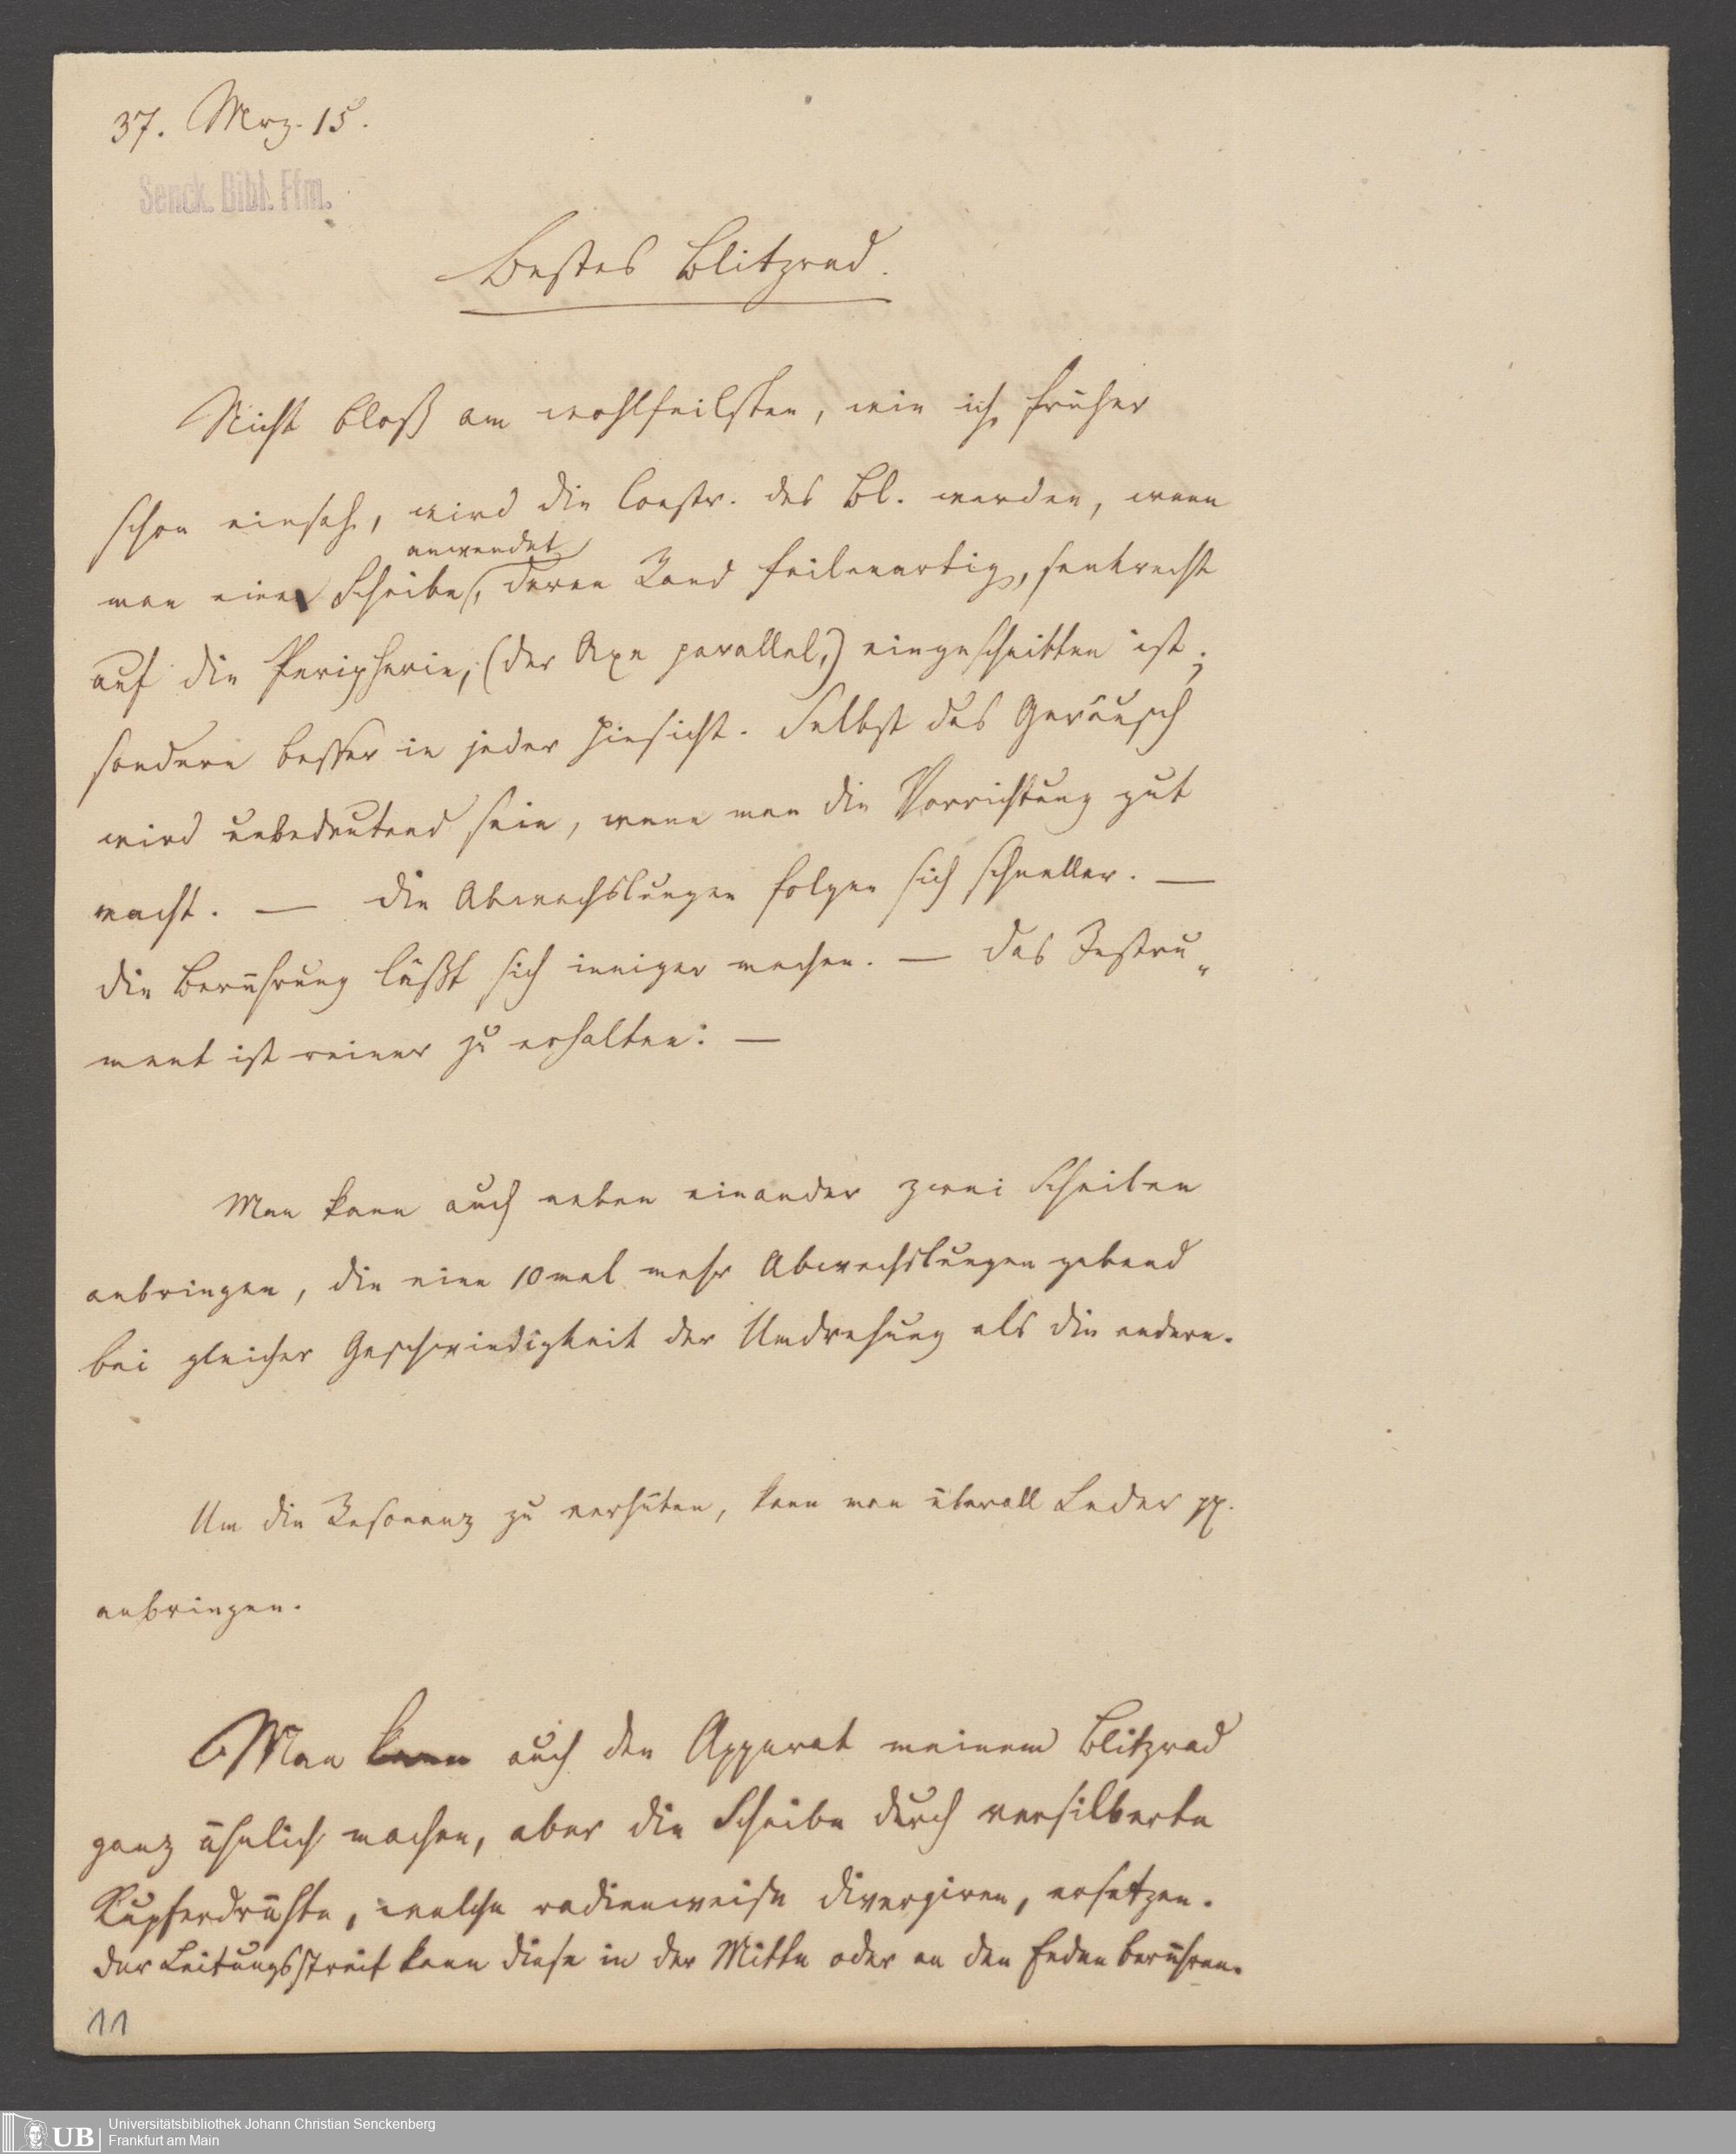 37. Mrz. 15.
Senck. Bibl. Ffm.
Bestes Blitzrad.
Nicht bloß am wohlfeilsten, wie ich früher
schon einsah, wird die Constr. des Bl. werden, wenn
anwendet
man eine Scheibe, deren Rand feilenartig, senkrecht
auf die Peripherie, (der Axe parallel,) eingeschnitten ist;
sondern besser in jeder Hinsicht. Selbst das Geräusch
wird unbedeutend sein, wenn man die Vorrichtung gut
macht. — Die Abwechslungen folgen sich schneller. —
Die Berührung läßt sich inniger machen. — Das Instru„
ment ist reiner zu erhalten: —
Man kann auch neben einander zwei Scheiben
anbringen, die eine 10mal mehr Abwechslungen gebend
bei gleicher Geschwindigkeit der Umdrehung als die andere.
Um die Resonanz zu verhüten, kann man überall Leder pp.
anbringen.
Man kann auch den Apparat meinem Blitzrad
ganz ähnlich machen, aber die Scheibe durch versilberte
Kupferdrähte, welche radienweise divergiren, ersetzen.
Der Leitungsstreif kann diese in der Mitte oder an den Enden berühren.
11
Universitätsbibliothek Johann Christian Senckenberg
UB Frankfurt am Main